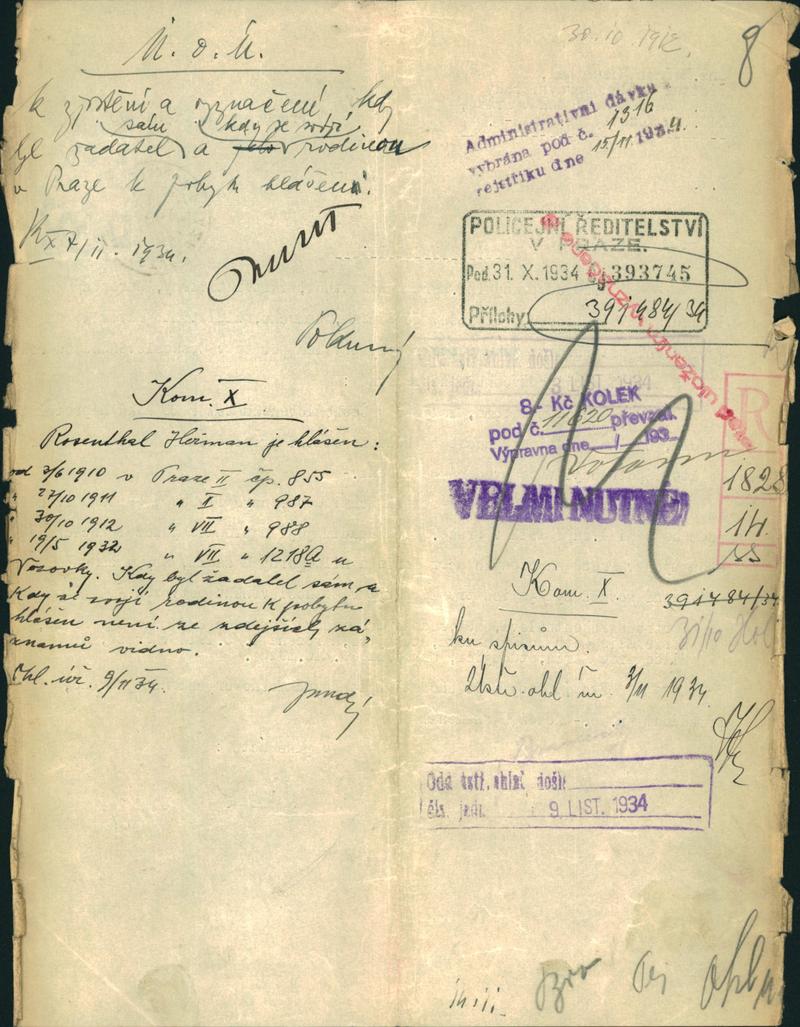 Ú. o. ú.
k zjištění a označení, kdy
sám kdy se svojí
byl žadatel a jeho rodinou
v Praze k pobytu hlášen.
K X 7/11. 1934.
Kom. X
Rosenthal Heřman je hlášen:
od 3/6 1910 v Praze II čp. 855
" 27/10 1911 " I " 987
" 30/10 1912 " VII " 988
" 19/5 1932 " VII " 1218a u
Vozovky. Kdy byl žadatel sám a
kdy se svojí rodinou k pobytu
hlášen není ze zdejších zá-
znamů vidno.
Ohl. úř. 9/11 34.
30.10.1912.
8
Administrativní dávka
vybrána pod č. 1316
rejstříku dne 15/11 1934.
POLICEJNÍ ŘEDITELSTVÍ
V PRAZE.
Pod. 31. X. 1934 čj 393745
Přílohy 391484/34
3 LIST. 1934
8- Kč KOLEK
pod č. 11620 převzal.
Výpravna dne / 193
VELMI NUTNÉ!
R
1828
14
Kom. X.
391484/34
31/10
ku spisům.
Ústř. ohl. úř. 3/11 1934.
Odd. ústř. ohlaš. došlo
čís. jedn. 9 LIST. 1934